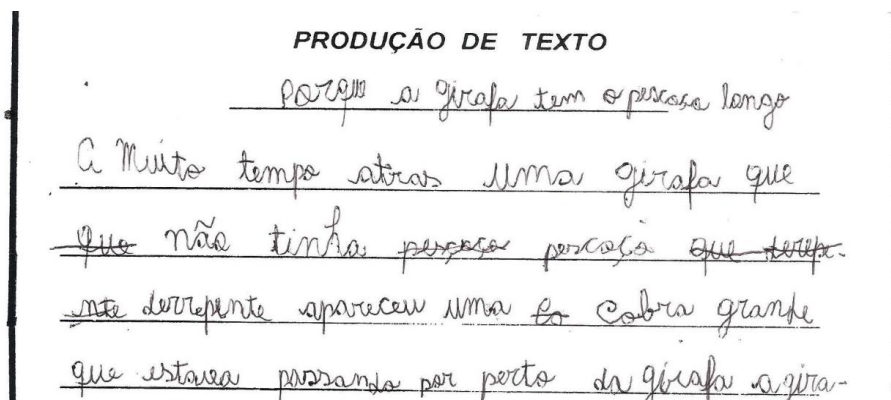 PRODUÇÃO DE TEXTO
Porque a girafa tem o pescoso longo
A Muito tempo atras uma girafa que
que não tinha pescoço pescoço que derepe-
nte derrepente apareceu uma co Cobra grande
que estava passando por perto da girafa a gira-